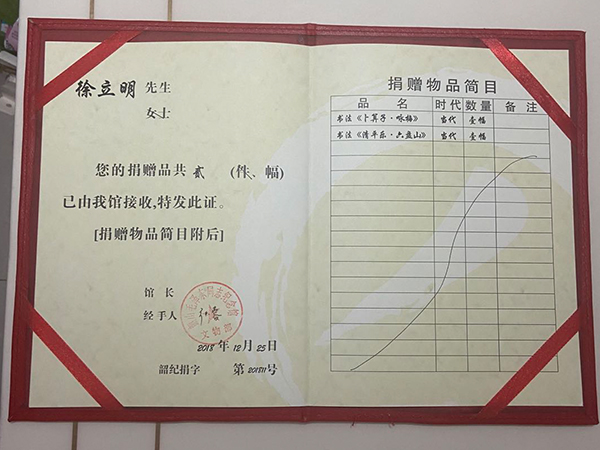 徐立明 先生
女士
您的捐赠品共 贰 (件、幅)
已由我馆接收,特发此证。
[捐赠物品简目附后]
馆 长
经手人
韶山毛泽东同志纪念馆
文物部
2018 年 12 月 25 日
韶纪捐字 第 201811 号
捐赠物品简目
品 名 时代 数量 备 注
书法《卜算子·咏梅》 当代 壹幅
书法《清平乐·六盘山》 当代 壹幅